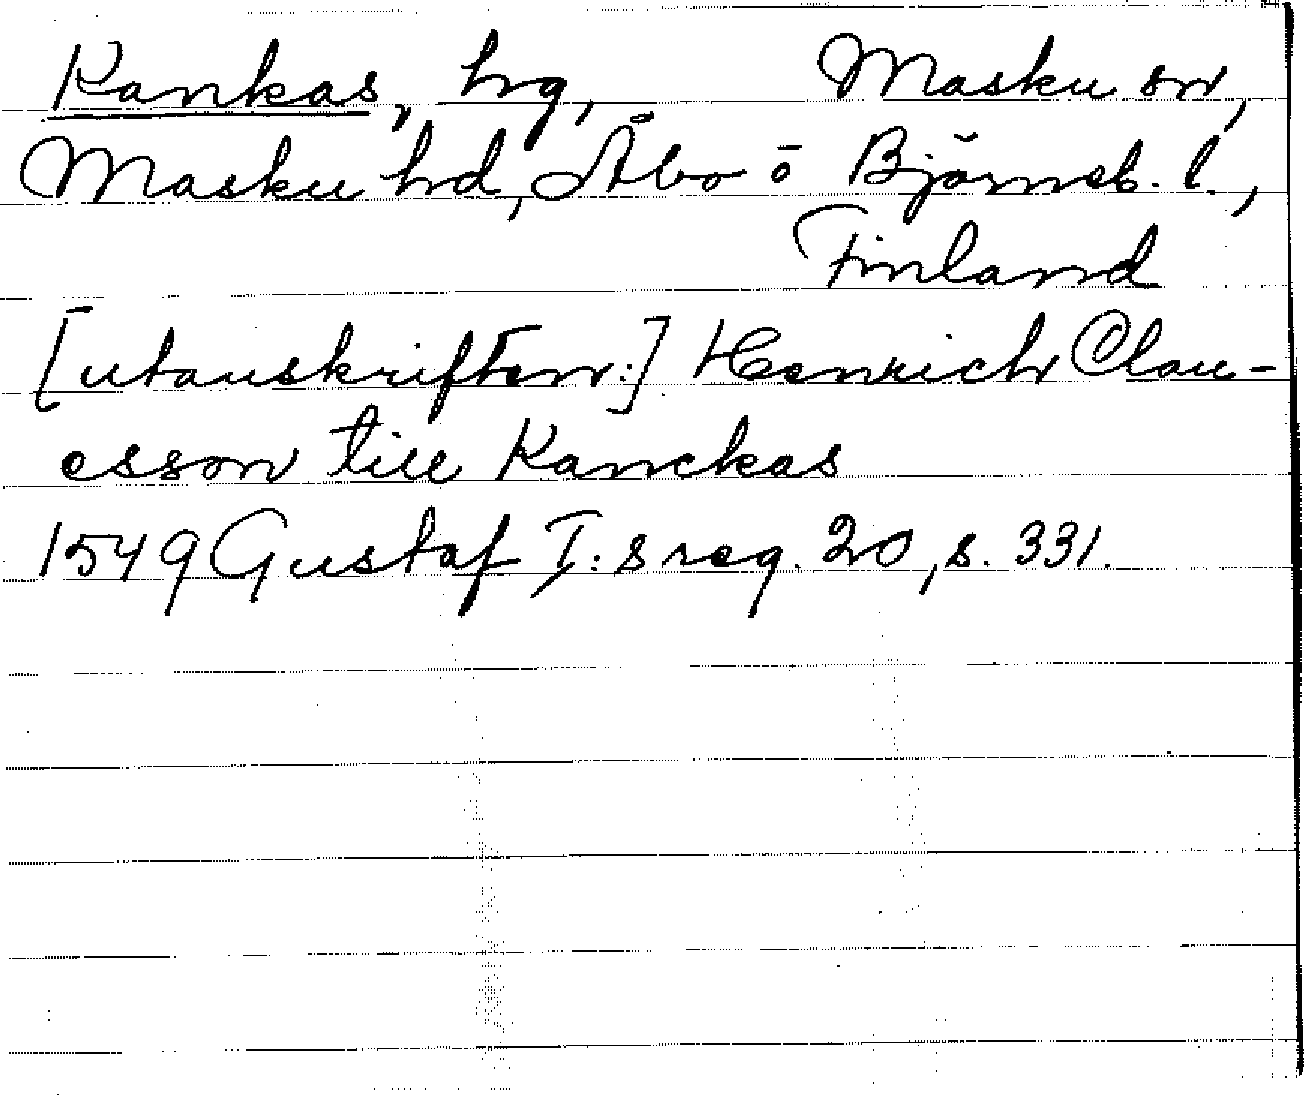 Kankas, hg, Masku sn,
Masku hd, Åbo o Björneb. l.,
Finland
[utanskriften:] Henrich Clau-
esson till Kanckas
1549 Gustaf I:s reg. 20, s. 331.